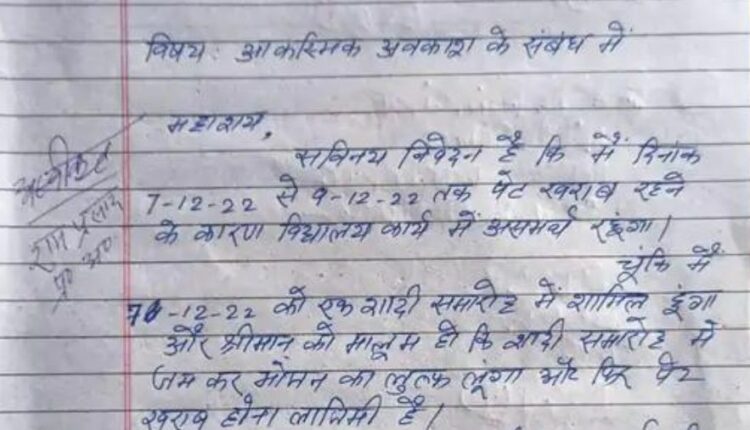 विषय: आकस्मिक अवकाश के संबंध में
महाशय,
सविनय निवेदन है कि मैं दिनांक
7-12-22 से 9-12-22 तक पेट खराब रहने
के कारण विद्यालय कार्य में असमर्थ रहूंगा।
चूंकि मैं
-12-22 को एक शादी समारोह में शामिल हूंगा
और श्रीमान् को मालूम हो कि शादी समारोह में
जम कर भोजन का लुत्फ लूंगा और फिर पेट
खराब होना लाजिमी है।
अस्वीकृत
राम प्रसाद
प्र० अ०